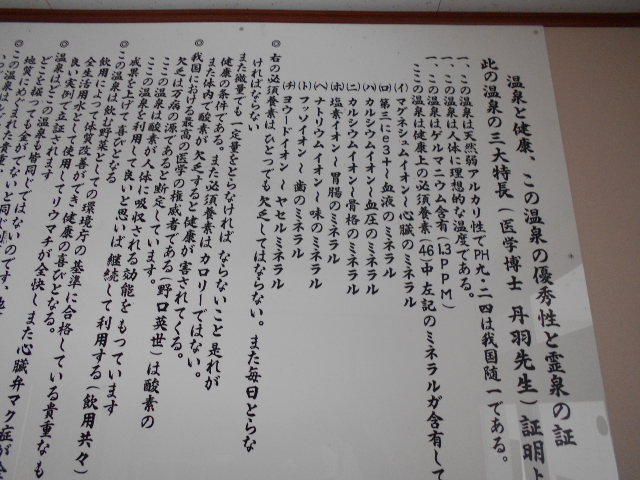 温泉と健康、この温泉の優秀性と霊泉の証
此の温泉の三大特長（医学博士 丹羽先生）証明
一、この温泉は天然弱アルカリ性でPH九・二四は我国随一である。
一、この温泉は人体に理想的な温度である。
一、この温泉はゲルマニウム含有（1.3PPM）
ここの温泉は健康上の必須養素（46）中左記のミネラルが含有して
（イ）マグネシュムイオン〜心臓のミネラル
（ロ）第三にe3+〜血液のミネラル
（ハ）カルシウムイオン〜血圧のミネラル
（ニ）カルシウムイオン〜骨格のミネラル
（ホ）塩素イオン〜胃腸のミネラル
（ヘ）ナトリウムイオン〜味のミネラル
（ト）フッソイオン〜歯のミネラル
（チ）ヨウードイオン〜ヤセルミネラル
◎右の必須養素はひとつでも欠乏してはならない。また毎日とらな
ければならない
また微量でも一定量をとらなければならないこと是れが
健康の条件である。また必須養素はカロリーではない。
また体内で酸素が欠乏すると健康が害されてくる。
◎我国における最高の医学の権威者である（野口英世）は酸素の
欠乏は万病の源であると断定しています。
ここの温泉は酸素が人体に吸収される効能をもっています
ここの温泉を利用して良いと思いば継続して利用する（飲用共々）
成果を上げて喜びとなる
◎この温泉は飲む野菜としての環境庁の基準に合格している貴重なも
飲用によって体質改善ができ、健康の喜びとなる。
全生活用水として使用してリウマチが全快しまた心臓弁マク症が全
良い実例で立証されています
◎温泉はどこの温泉も皆同じではない
どこを掘っても金がでないと同じ
地質にめぐまれた貴重
◎この温泉は